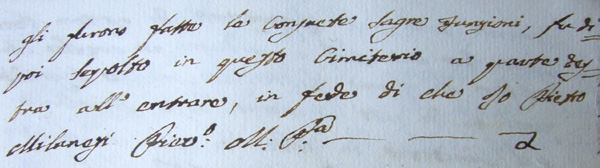 gli furono fatte le consuete sagre funzioni, fu di=
poi sepolto in questo Cimiterio a parte des=
tra all' entrare, in fede di che Io Pietro
Milanesi Piov.o M. P.a